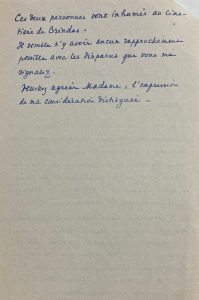 Ces deux personnes sont inhumés au cime-
tière de Brindas.
Il semble n'y avoir aucun rapprochement
possible avec les disparus que vous me
signalez.
Veuillez agréer Madame, l'expression
de ma considération distinguée -